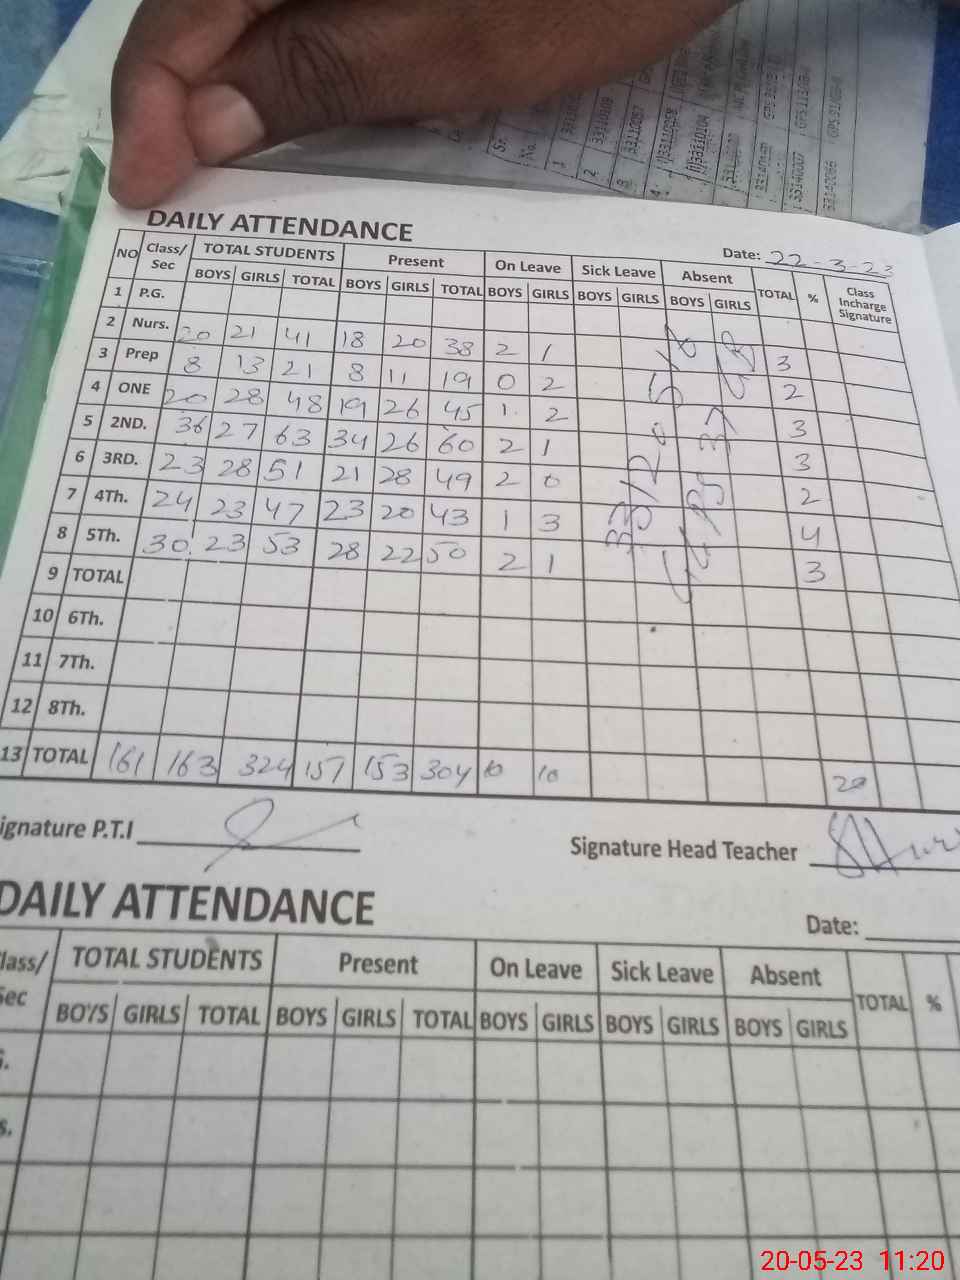 DAILY ATTENDANCE
Date: 22-3-23
NO Class/ Sec TOTAL STUDENTS Present On Leave Sick Leave Absent TOTAL % Class Incharge Signature
BOYS GIRLS TOTAL BOYS GIRLS TOTAL BOYS GIRLS BOYS GIRLS BOYS GIRLS
1 P.G.
2 Nurs. 20 21 41 18 20 38 2 1 3
3 Prep 8 13 21 8 11 19 0 2 2
4 ONE 20 28 48 19 26 45 1 2 3
5 2ND. 36 27 63 34 26 60 2 1 3
6 3RD. 23 28 51 21 28 49 2 0 2
7 4Th. 24 23 47 23 20 43 1 3 4
8 5Th. 30 23 53 28 22 50 2 1 3
9 TOTAL
10 6Th.
11 7Th.
12 8Th.
13 TOTAL 161 163 324 151 153 304 10 10 20
ignature P.T.I
Signature Head Teacher
DAILY ATTENDANCE
Date:
lass/ Sec TOTAL STUDENTS Present On Leave Sick Leave Absent TOTAL %
BOYS GIRLS TOTAL BOYS GIRLS TOTAL BOYS GIRLS BOYS GIRLS BOYS GIRLS
20-05-23 11:20